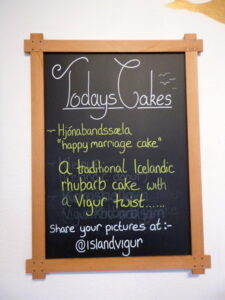 Todays Cakes
~ Hjónabandssæla
"happy marriage cake"
A traditional Icelandic
rhubarb cake with
a Vigur twist......
Share your pictures at:-
@islandvigur